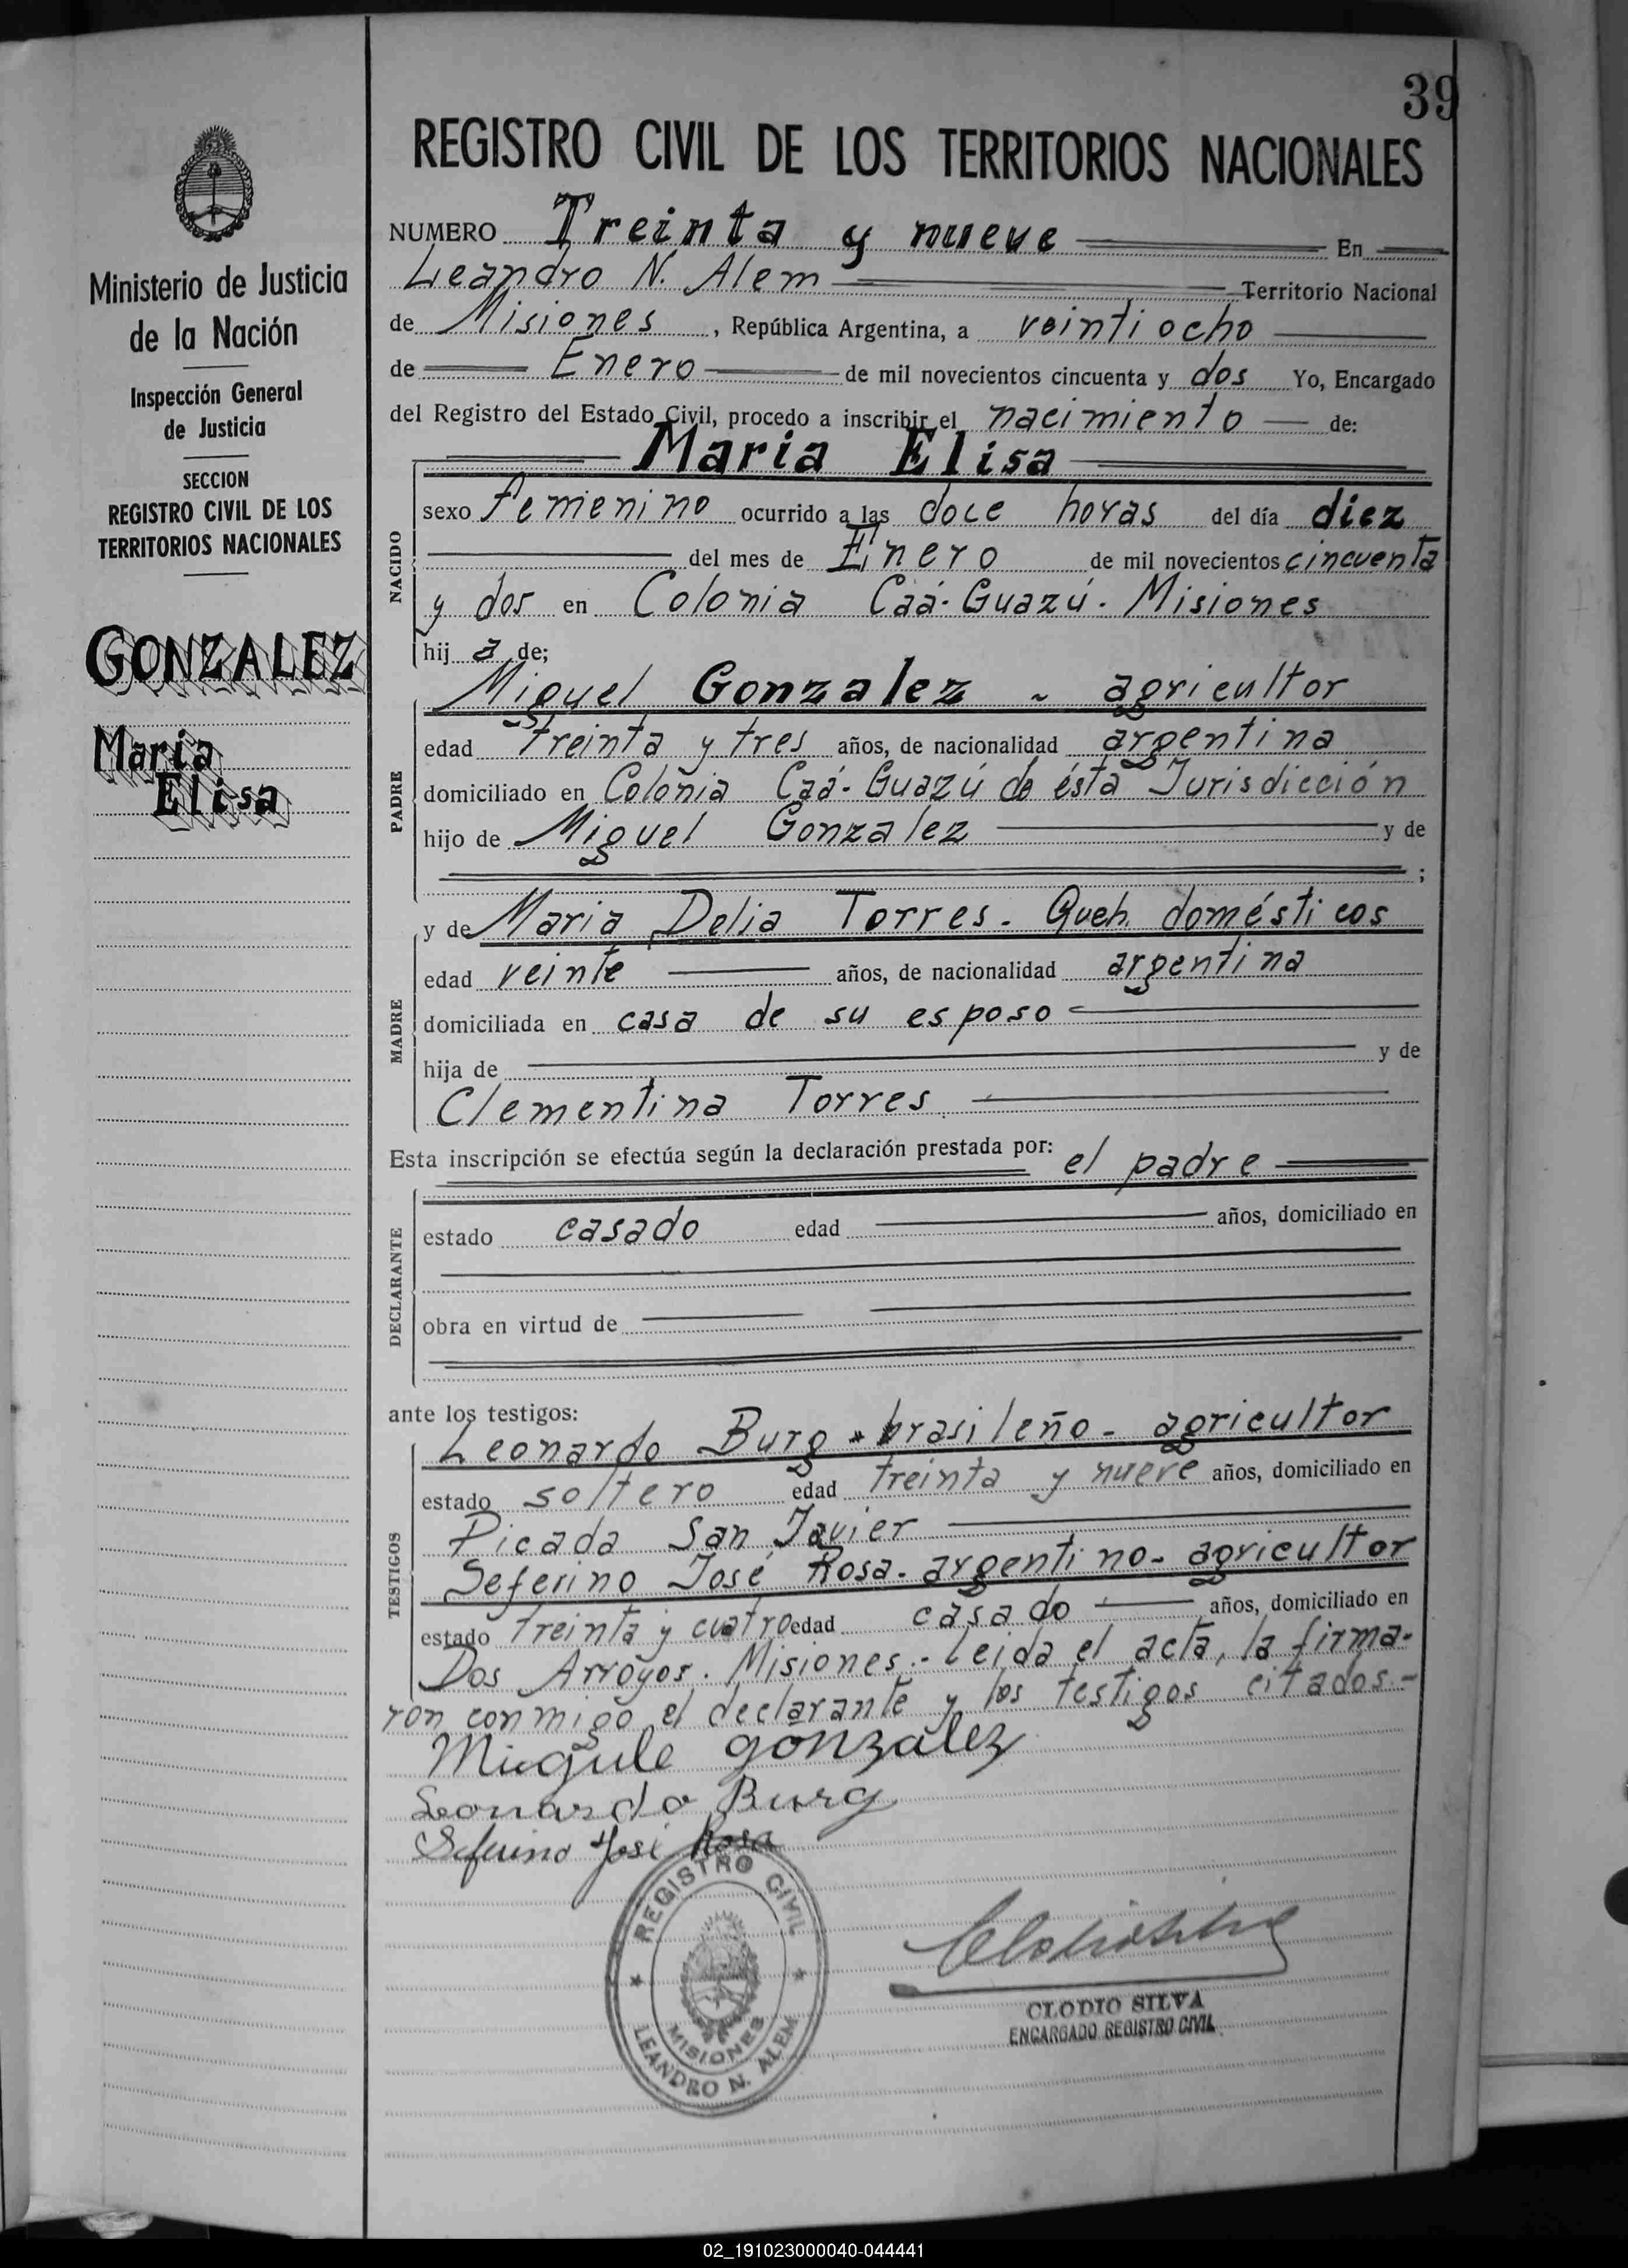 39
Ministerio de Justicia
de la Nación
Inspección General
de Justicia
SECCION
REGISTRO CIVIL DE LOS
TERRITORIOS NACIONALES
GONZALEZ
Maria
Elisa
REGISTRO CIVIL DE LOS TERRITORIOS NACIONALES
NUMERO Treinta y nueve En
Leandro N. Alem Territorio Nacional
de Misiones, República Argentina, a veintiocho
de Enero de mil novecientos cincuenta y dos Yo, Encargado
del Registro del Estado Civil, procedo a inscribir el nacimiento de:
Maria Elisa
NACIDO
sexo femenino ocurrido a las doce horas del día diez
del mes de Enero de mil novecientos cincuenta
y dos en Colonia Caá-Guazú. Misiones
hij a de;
Miguel Gonzalez - agricultor
PADRE
edad treinta y tres años, de nacionalidad argentina
domiciliado en Colonia Caá-Guazú de ésta Jurisdicción
hijo de Miguel Gonzalez y de
;
y de Maria Delia Torres. Queh. domésticos
MADRE
edad veinte años, de nacionalidad argentina
domiciliada en casa de su esposo
hija de y de
Clementina Torres
Esta inscripción se efectúa según la declaración prestada por: el padre
DECLARANTE
estado casado edad años, domiciliado en
obra en virtud de
ante los testigos:
TESTIGOS
Leonardo Burg - brasileño - agricultor
estado soltero edad treinta y nueve años, domiciliado en
Picada San Javier
Seferino José Rosa - argentino - agricultor
estado treinta y cuatro edad casado años, domiciliado en
Dos Arroyos. Misiones.- Leida el acta, la firma-
ron conmigo el declarante y los testigos citados.-
Miegule gonzalez
Leonardo Burg
Seferino José Rosa
REGISTRO CIVIL
MISIONES
LEANDRO N. ALEM
CLODIO SILVA
ENCARGADO REGISTRO CIVIL
02_191023000040-044441